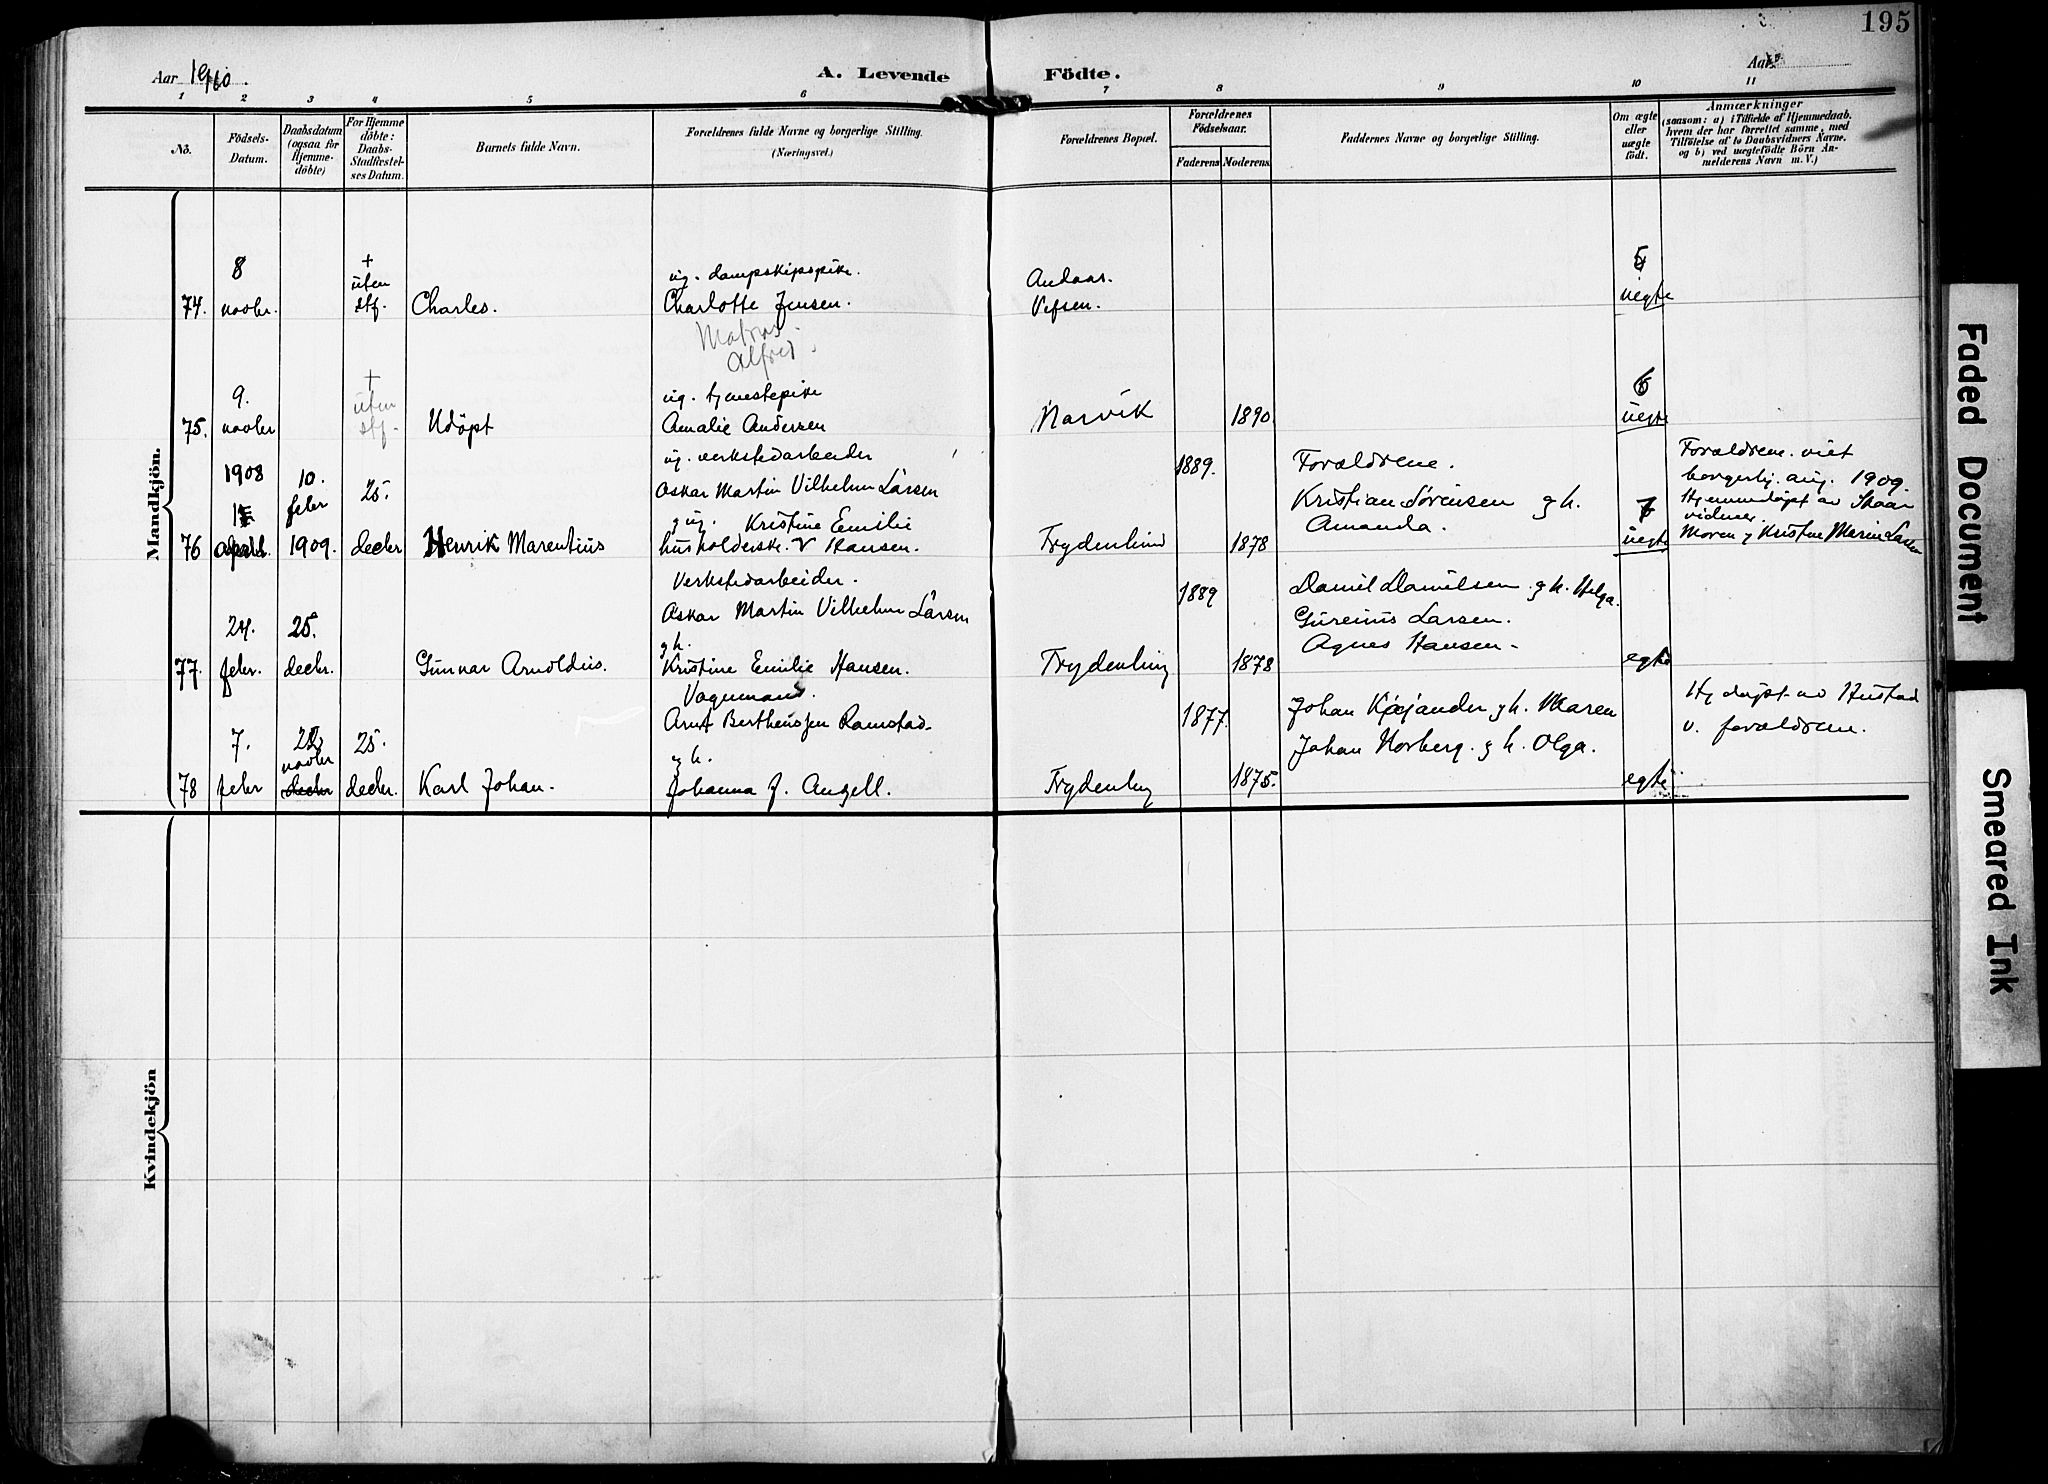 195
Aar 1910.
A. Levende Födte.
Aar
1 2 3 4 5 6 7 8 9 10 11
No.
Födsels-Datum.
Daabsdatum (ogsaa for Hjemmedöbte)
For Hjemmedöbte: Daabs-Stadfæstelses Datum.
Barnets fulde Navn.
Forældrenes fulde Navne og borgerlige Stilling. (Næringsvei.)
Forældrenes Bopæl.
Forældrenes Födselsaar.
Faderens. Moderens.
Faddernes Navne og borgerlige Stilling.
Om ægte eller uægte födt.
Anmærkninger
(saasom: a) i Tilfælde af Hjemmedaab. hvem der har forrettet samme, med Tilföielse af to Daabsvidners Navne. og b) ved uægtefödte Börn Anmelderens Navn m. V.)
Mandkjön.
8 + 5
uten ug. dampskipspike. Andaas.
74. novbr. stf. Charles. Charlotte Jensen. Vefsen. uegte
Alfred
9. + 6
uten ug. tjenestepike
75. novbr stf. Udöpt Amalie Andersen Narvik 1890 uegte
1908 10. ug. verkstedarbeider 1889. Forældrene. Forældrene viet
febr 25. Oskar Martin Vilhelm Larsen Kristian Sørensen g h. borgerlig. aug. 1909.
g ug. Kristine Emilie Amanda. 7 Hjemmedöpt av Skaar
76 1909. decbr Henrik Marentius husholderske. V Hansen. Frydenlund 1878 uegte Moren g Kristine Marie Larsen
Verkstedarbeider. 1889 Daniel Danielsen g h. Helga.
24. 25. Oskar Martin Vilhelm Larsen Larsen.
g h. Agnes Hansen
77. febr. decbr. Gunnar Arnoldus. Kristine Emilie Hansen. Frydenlung 1878 egte
Vognmand. 1877. Johan g h. Maren Hj döpt av Hustad
7. 22 25. Ramstad Johan Norberg. g h. Olga. v. forældrene.
novbr g h.
78 febr decbr decbr. Karl Johan. Johanna J. Angell. Frydenlung 1875. egte
Kvindekjön
Faded Document
Smeared Ink